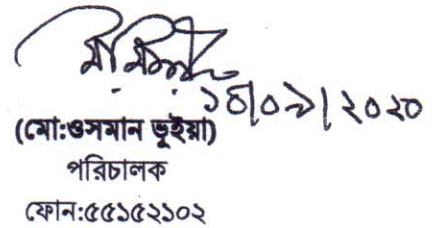 ১৫/০৯/২০২০
(মো:ওসমান ভূইয়া)
পরিচালক
ফোন:৫৫১৫২১০২